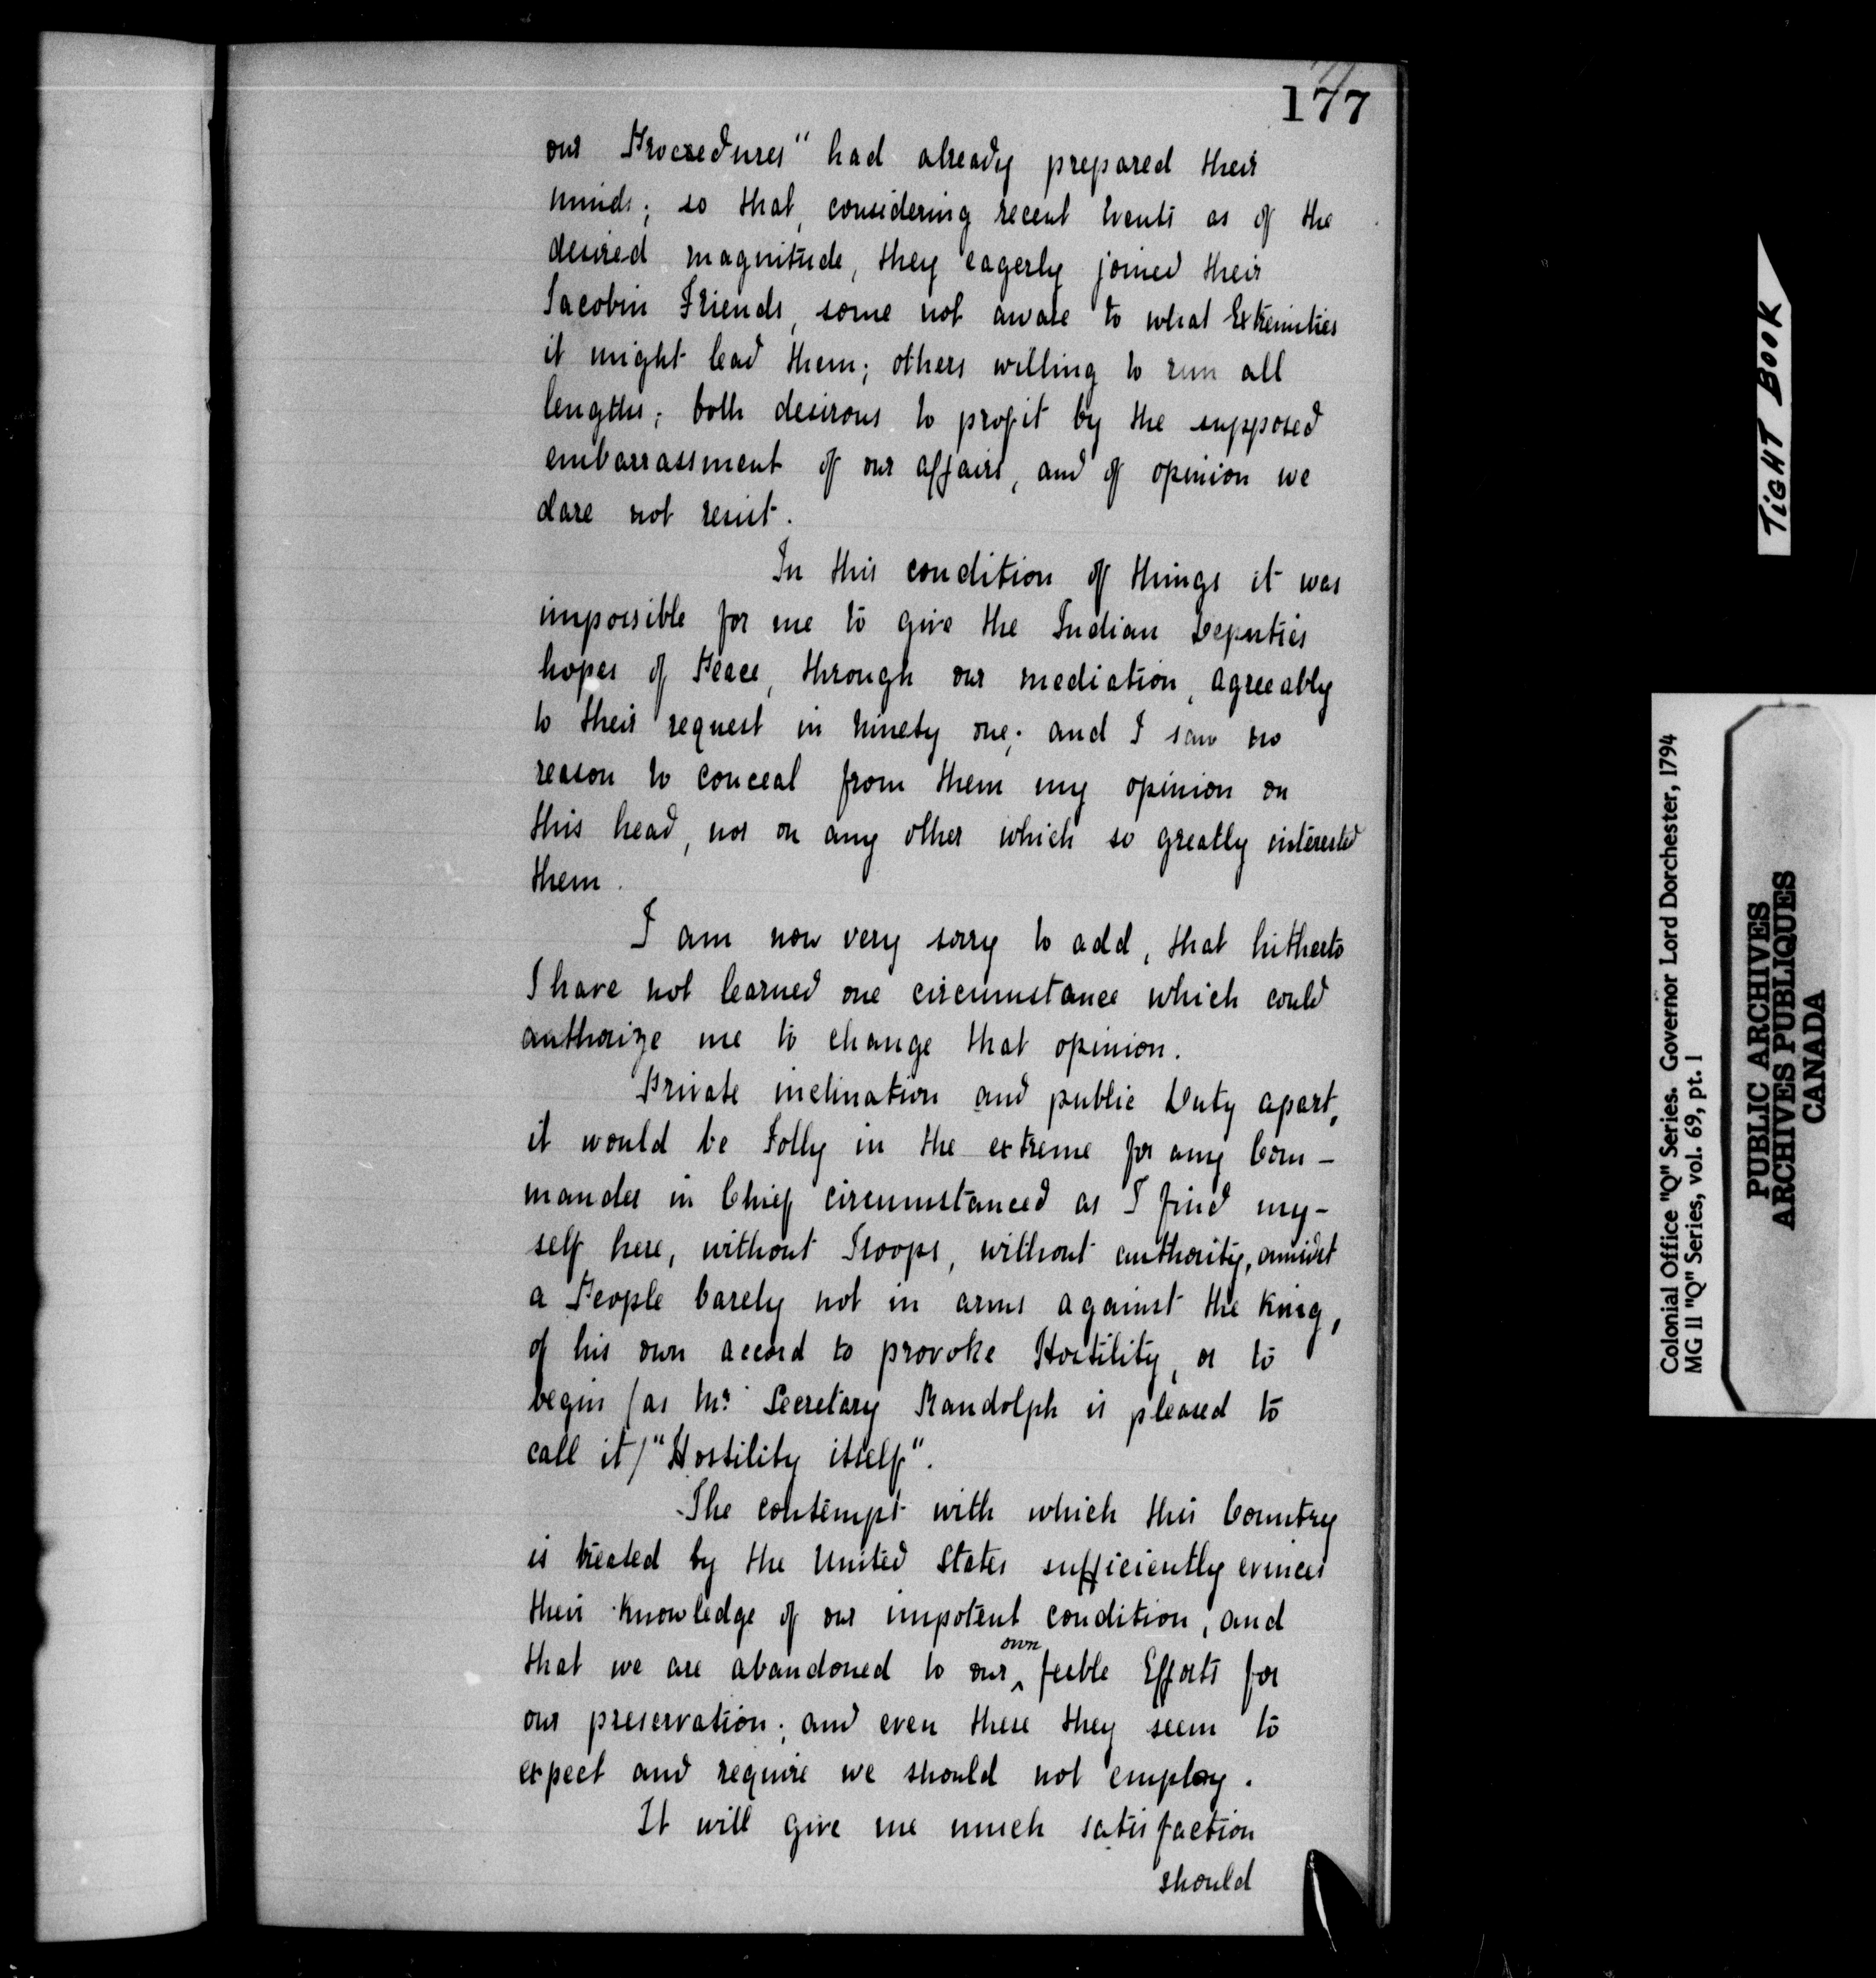 177
our Procedures" had already prepared their
minds; so that, considering recent Events as of the
desired magnitude, they eagerly joined their
Jacobin Friends, some not aware to what Extremities
it might lead them; others willing to run all
lengths; both desirous to profit by the supposed
embarrassment of our affairs, and of opinion we
dare not resist.
In this condition of things it was
impossible for me to give the Indian Deputies
hopes of Peace, through our mediation, agreeably
to their request in Ninety one; and I saw no
reason to conceal from them my opinion on
this head, nor on any other which so greatly interested
them.
I am now very sorry to add, that hitherto
I have not learned one circumstance which could
authorize me to change that opinion.
Private inclination and public Duty apart,
it would be Folly in the extreme for any Com-
mander in Chief circumstanced as I find my-
self here, without Troops, without authority, amidst
a People barely not in arms against the King,
of his own accord to provoke Hostility, or to
begin (as Mr. Secretary Randolph is pleased to
call it) "Hostility itself".
The contempt with which this Country
is treated by the United States sufficiently evinces
their knowledge of our impotent condition, and
that we are abandoned to our own feeble Efforts for
our preservation; and even these they seem to
expect and require we should not employ.
It will give me much satisfaction
should
TIGHT BOOK
Colonial Office "Q" Series. Governor Lord Dorchester, 1794
MG 11 "Q" Series, vol. 69, pt. 1
PUBLIC ARCHIVES
ARCHIVES PUBLIQUES
CANADA